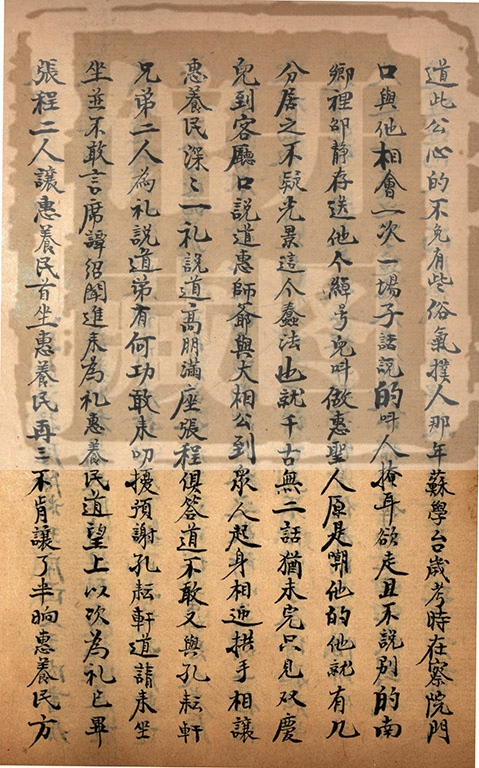 道此公心的不免有些俗氣撲人那年蘇學台歲考時在察院門
口與他相會一次一場子話說的叫人掩耳欲走且不說別的南
鄉裡邵静存送他个綽号兒叫做惠聖人原是嘲他的他就有几
分居之不疑光景這个蠢法也就千古無二話猶未完只見双慶
兒到客廳口說道惠師爺與大相公到衆人起身相迎拱手相讓
惠養民深〻一礼說道高朋滿座張程俱答道不敢又與孔耘軒
兄弟二人為礼說道弟有何功敢来叨擾預謝孔耘軒道請来坐
坐並不敢言席譚紹聞進来為礼惠養民道望上以次為礼已畢
張程二人讓惠養民首坐惠養民再三不肯讓了半晌惠養民方